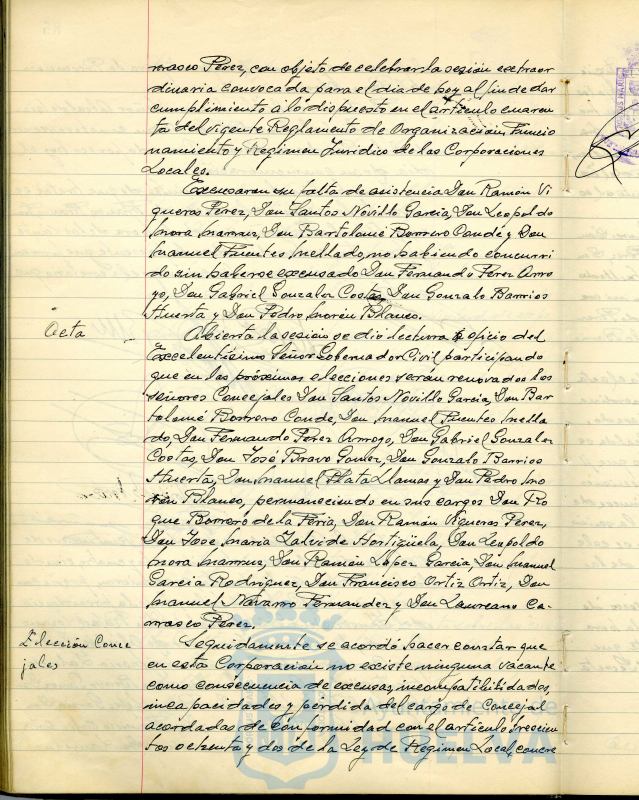 rrasco Perez, con objeto de celebrar la sesión extraor
dinaria convocada para el día de hoy al fin de dar
cumplimiento a lo dispuesto en el artículo cuaren
ta del vigente Reglamento de Organización, Funcio
namiento y Regimen Jurídico de las Corporaciones
Locales.
Excusaron su falta de asistencia Don Ramón Vi
gueras Perez, Don Santos Novillo Garcia, Don Leopoldo
Mora, Don Bartolomé Borrero Conde y Don
Manuel Fuentes Mellado, no habiendo concurri
do sin haberse excusado Don Fernando Perez Arro
yo, Don Gabriel Gonzalez Costas, Don Gonzalo Barrios
Huerta y Don Pedro Morén Blanco.
Acta - Abierta la sesión se dio lectura a oficio del
Excelentísimo Señor Gobernador Civil participando
que en las próximas elecciones serán renovados los
señores Concejales Don Santos Novillo Garcia, Don Bar
tolomé Borrero Conde, Don Manuel Fuentes Mella
do, Don Fernando Perez Arroyo, Don Gabriel Gonzalez
Costas, Don José Bravo Gomez, Don Gonzalo Barrios
Huerta, Don Manuel Plata Llamas y Don Pedro Mo
rén Blanco, permaneciendo en sus cargos Don Ro
que Borrero de la Feria, Don Ramón Vigueras Perez,
Don Jose Maria Zalvide Hostigüela, Don Leopoldo
Mora, Don Ramón López Garcia, Don Manuel
Garcia Rodriguez, Don Francisco Ortiz Ortiz, Don
Manuel Navarro Fernandez y Don Laureano Ca-
rrasco Perez.
Elección Conce
jales
Seguidamente se acordó hacer constar que
en esta Corporación no existe ninguna vacante
como consecuencia de excusas, incompatibilidades,
incapacidades y pérdida del cargo de Concejal
acordadas de conformidad con el artículo trescien
tos ochenta y dos de la Ley de Regimen Local, concre
HUELVA